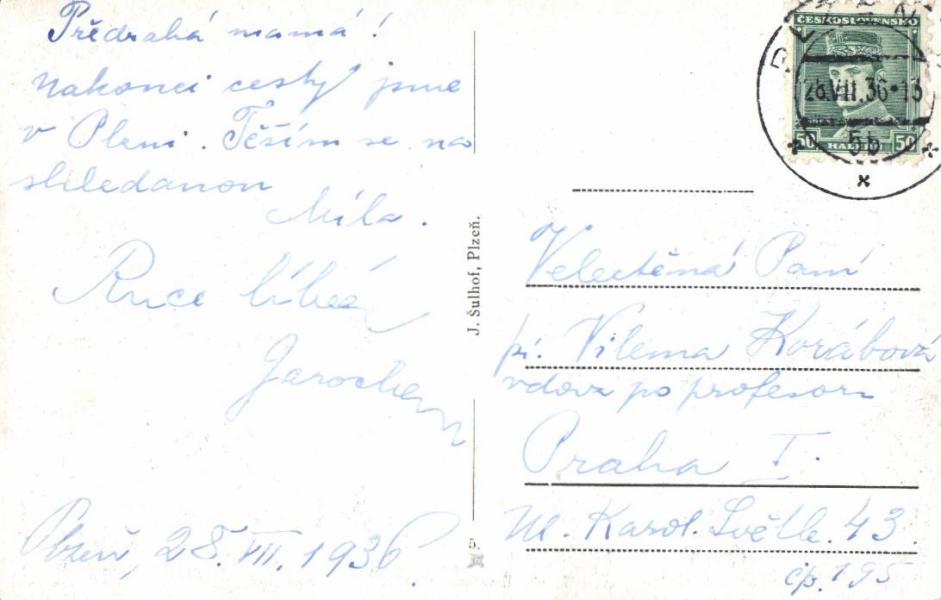 Předrahá mamá!
Nakonci cesty jsme
v Plzni. Těším se na
shledanou
Míla.
Ruce líbá
Plzeň, 28. VII. 1936.
J. Šulhof, Plzeň.
ČESKOSLOVENSKO
28.VII.36-13
50 HALÉŘŮ 50
5b
Velectěná Paní
pí. Vilema Korábová
vdova po profesoru
Praha I.
Ul. Karol. Světlé. 43.
čp. 195